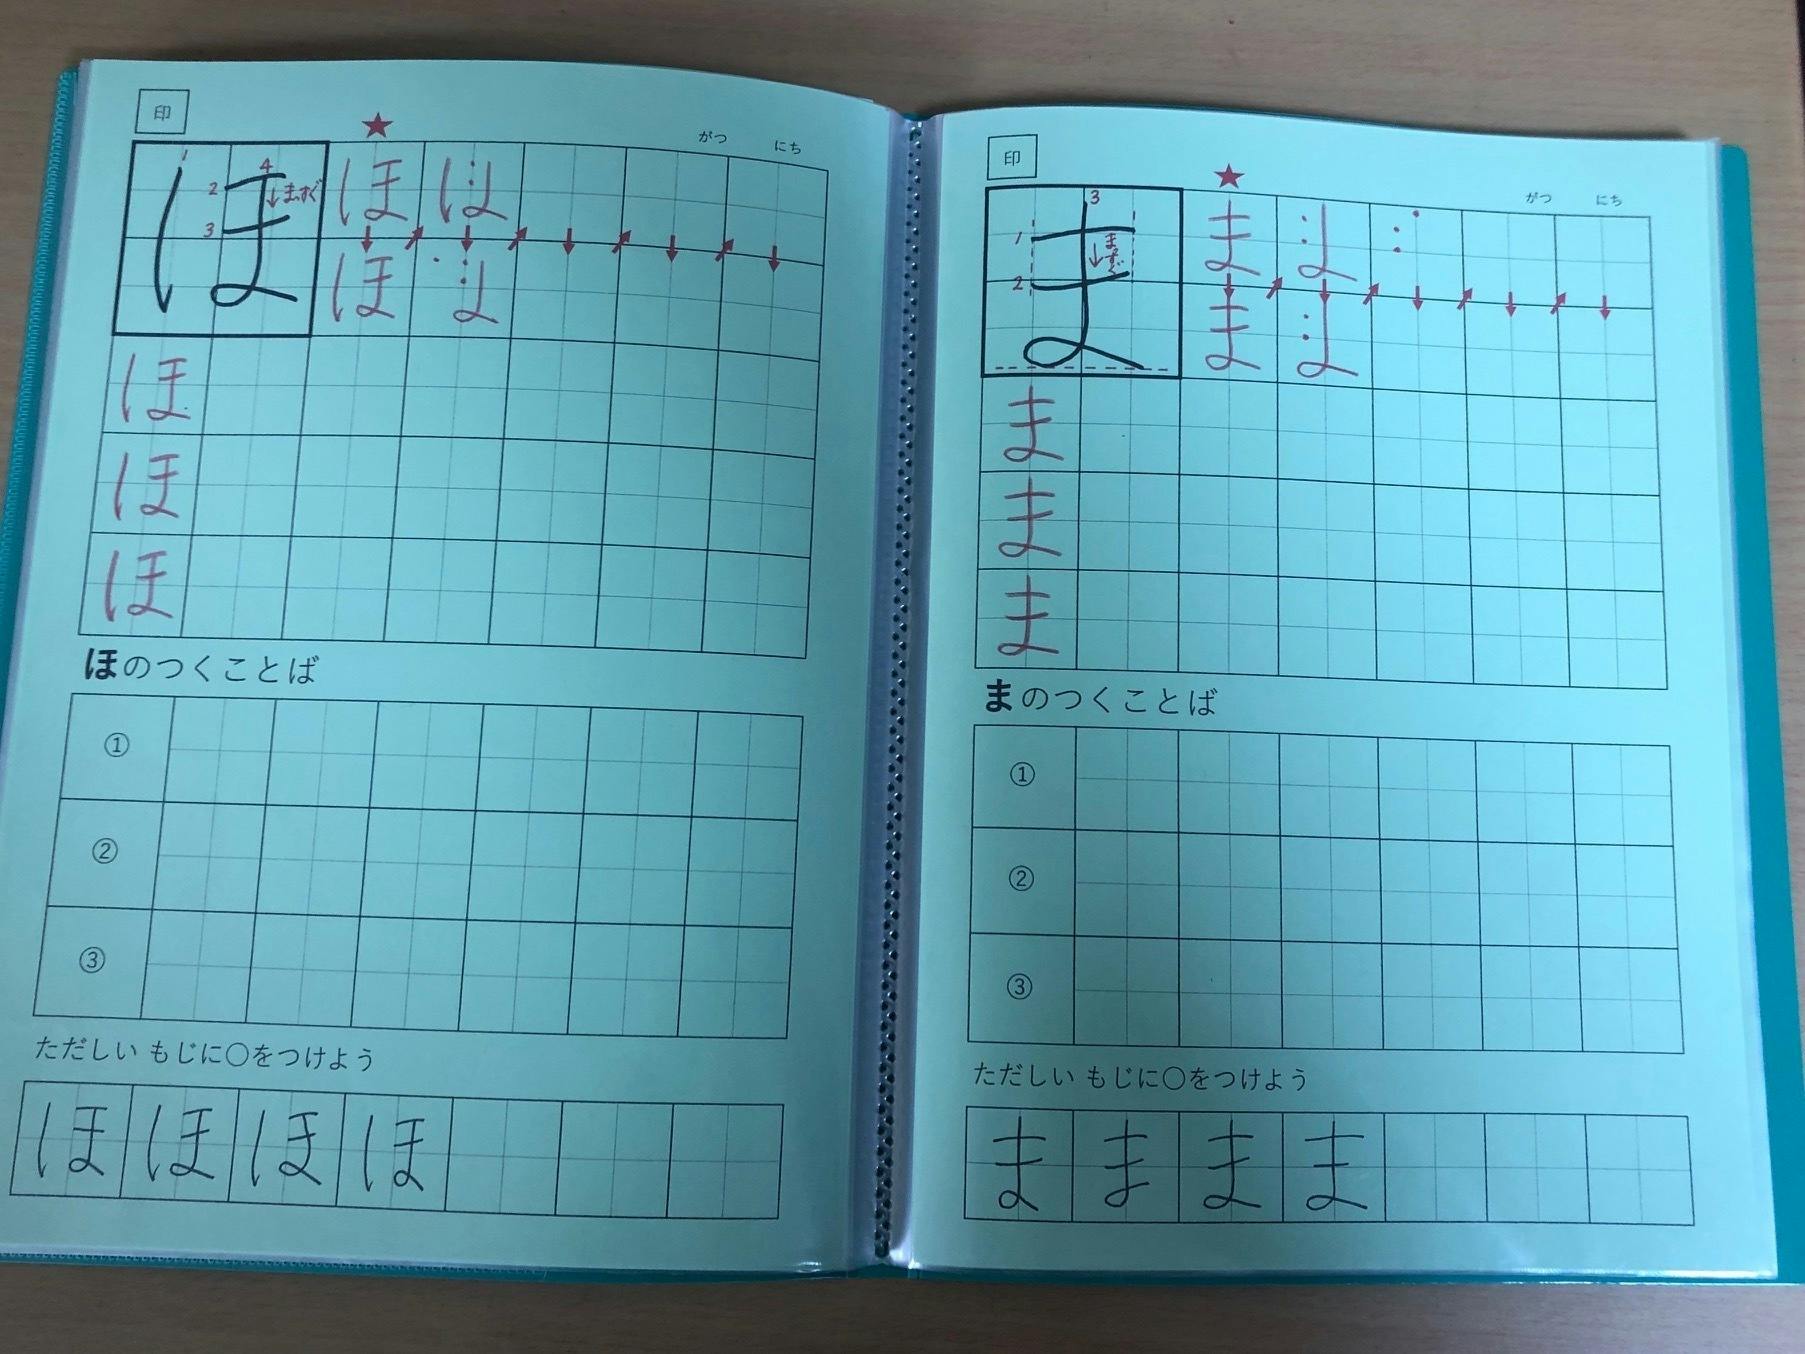 印
★
がつ にち
1
4
2
まっすぐ
3
ほ
ほ は
ほ
ほ
ほ
ほ
ほのつくことば
①
②
③
ただしい もじに○をつけよう
ほ ほ ほ ほ
印
★
がつ にち
3
1
まっすぐ
2
ま
ま
ま
ま
ま
ま
まのつくことば
①
②
③
ただしい もじに○をつけよう
ま ま ま ま